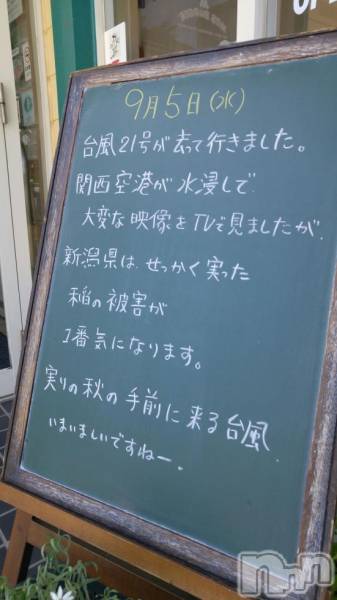 9月5日(水)
台風21号が去って行きました。
関西空港が水浸しで
大変な映像をTVで見ましたが、
新潟県は、せっかく実った
稲の被害が
1番気になります。
実りの秋の手前に来る台風
いまいましいですねー。